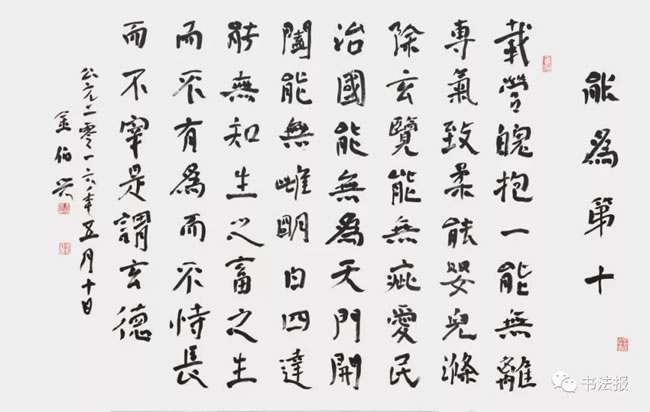 能為第十
載營魄抱一能無離
專氣致柔能嬰兒滌
除玄覽能無疵愛民
治國能無為天門開
闔能無雌明白四達
能無知生之畜之生
而不有為而不恃長
而不宰是謂玄德
公元二零一六年五月十日
金伯興
书法报